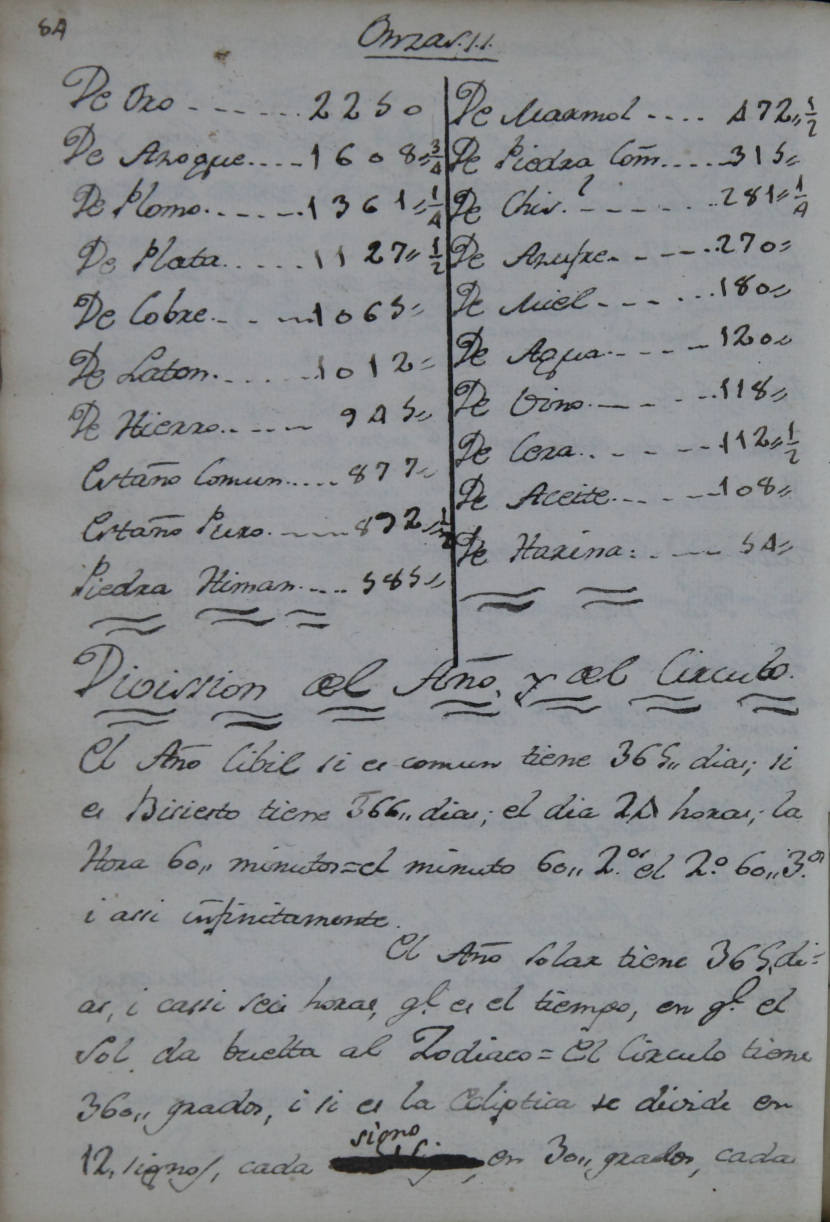 84
Onzas..
De Oro - - - - - - 2250
De Azogue.... 1608„ 3/4
De Plomo. - - - - - 1361„ 1/4
De Plata. . . . . 1127„ 1/2
De Cobre. - - - - 1065„
De Laton. . . . . . 1012„
De Hierro. . - - - 945„
Estaño Comun. . . . . 877„
Estaño Puro. - - - - 832„ 1/2
Piedra Himan. . - - 585„
De Marmol - - - - 472„ 1/2
De Piedra Com̃. . . . - - 315„
De Chis.l - - - - - - 281„ 1/4
De Azufre. - - - - . . 270„
De Miel - - - . . . 180„
De Agua. - - - - 120„
De Vino. - - - - . . 118„
De Cera. . - - - - 112„ 1/2
De Aceite. - - - . . 108„
De Harina: . - - - 54„
Divission del Año, y del Circulo.
El Año Cibil si es comun tiene 365„ dias; si
es Bisiesto tiene 366„ dias; el dia 24 horas; la
Hora 60„ minutos = el minuto 60„ 2.os el 2.o 60„ 3.os
i assi infinitamente.
El Año Solar tiene 365„ di=
as, i cassi seis horas, q.e es el tiempo, en q.e el
Sol da buelta al Zodiaco = El Circulo tiene
360„ grados, i si es la Ecliptica se divide en
12„ signos, cada signo en 30„ grados, cada